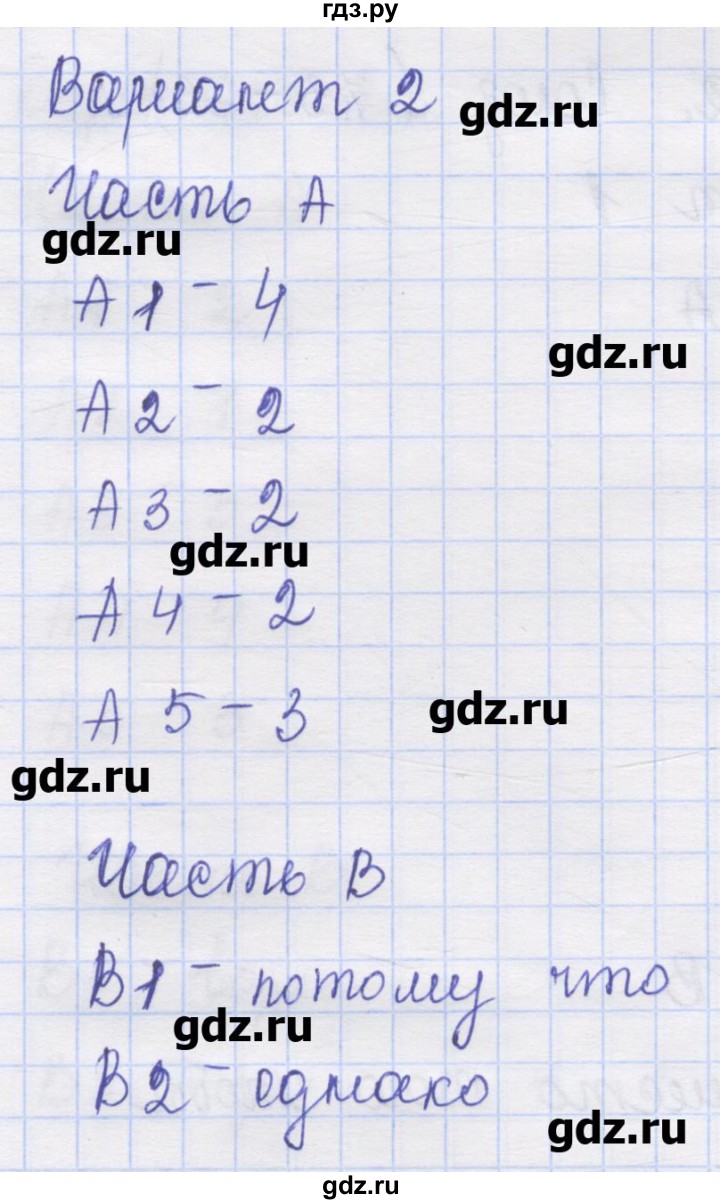 гдз.ру
Вариант 2
gdz.ru
Часть А
gdz.ru
А1 - 4
gdz.ru
А2 - 2
А3 - 2
gdz.ru
А4 - 2
А5 - 3
gdz.ru
gdz.ru
Часть В
В1 - потому что
gdz.ru
В2 - однако
gdz.ru
gdz.ru